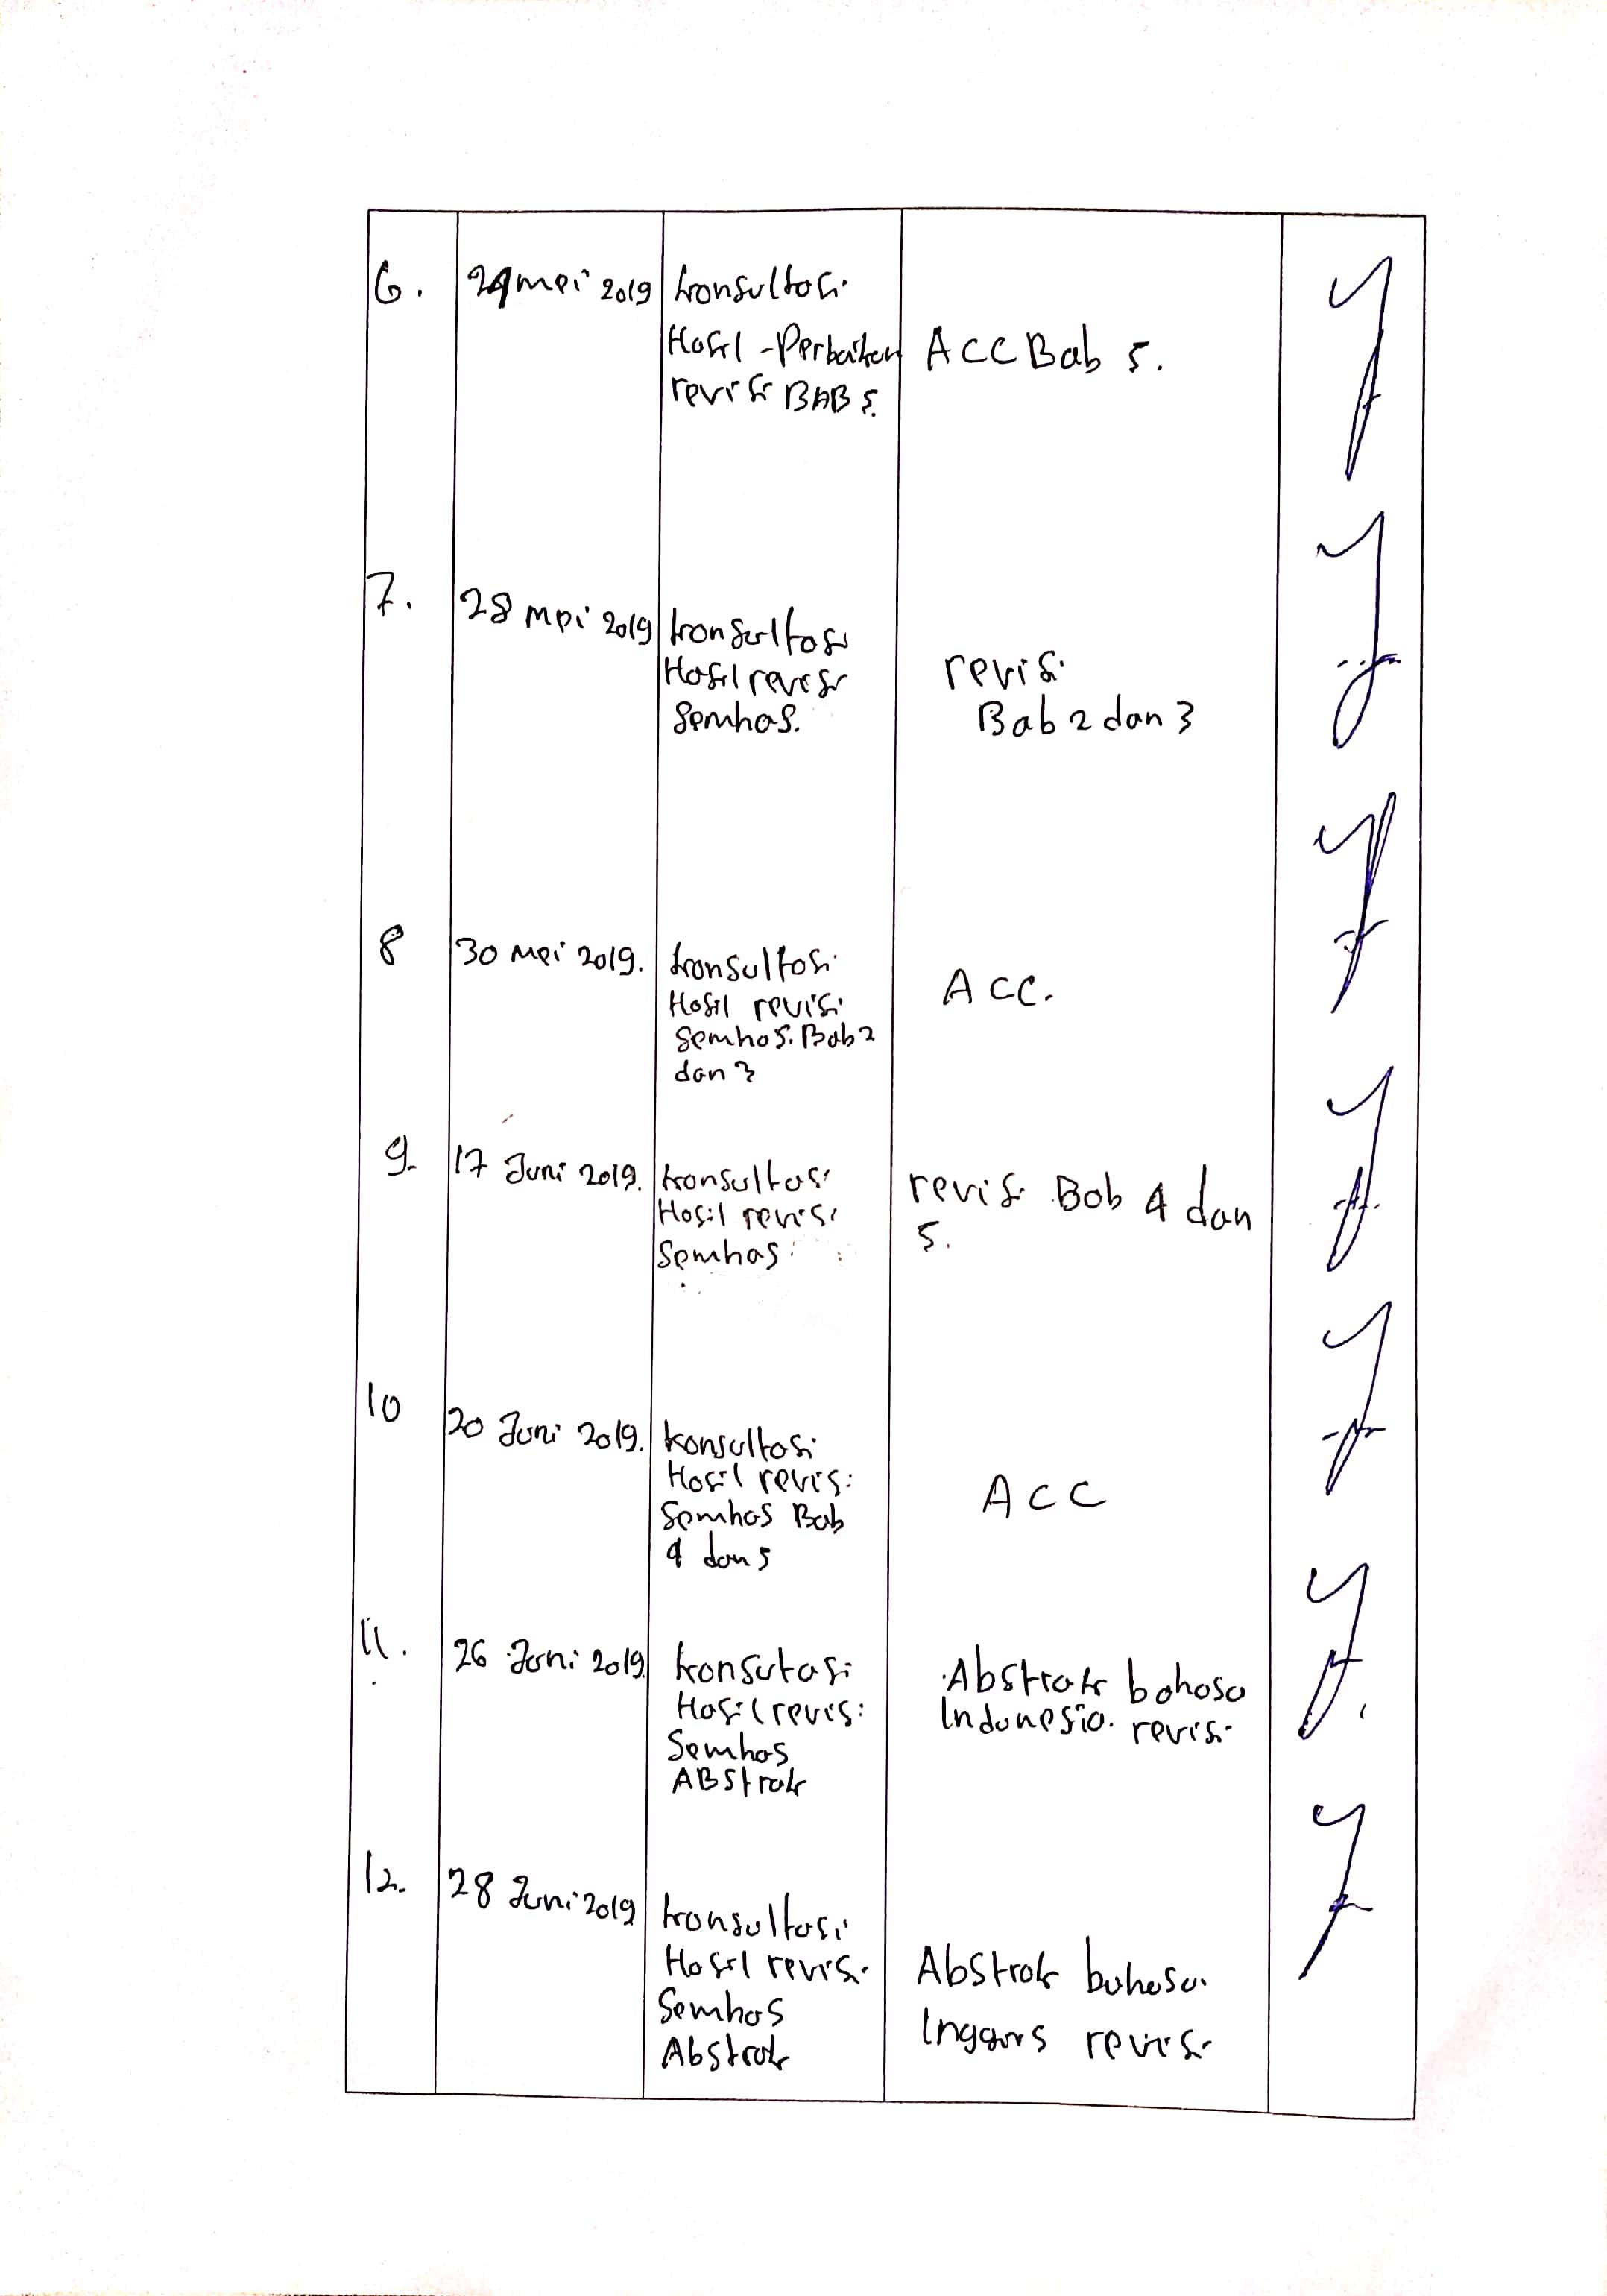 6. 24 mei 2019 konsultasi
Hasil - Perbaikan
revisi BAB 5.
ACC Bab 5.
7. 28 mei 2019 konsultasi
Hasil revisi
Semhas.
revisi
Bab 2 dan 3
8 30 Mei 2019. konsultasi
Hasil revisi
Semhas. Bab 2
dan 3
ACC.
9. 17 Juni 2019. konsultasi
Hasil revisi
Semhas
revisi Bab 4 dan
5.
10 20 Juni 2019. konsultasi
Hasil revisi
Semhas Bab
4 dan 5
ACC
11. 26 Juni 2019 konsutasi
Hasil revisi
Semhas
ABStrak
Abstrak bahasa
Indonesia. revisi
12. 28 Juni 2019 konsultasi
Hasil revisi
Semhas
Abstrak
Abstrak bahasa
Inggris revisi